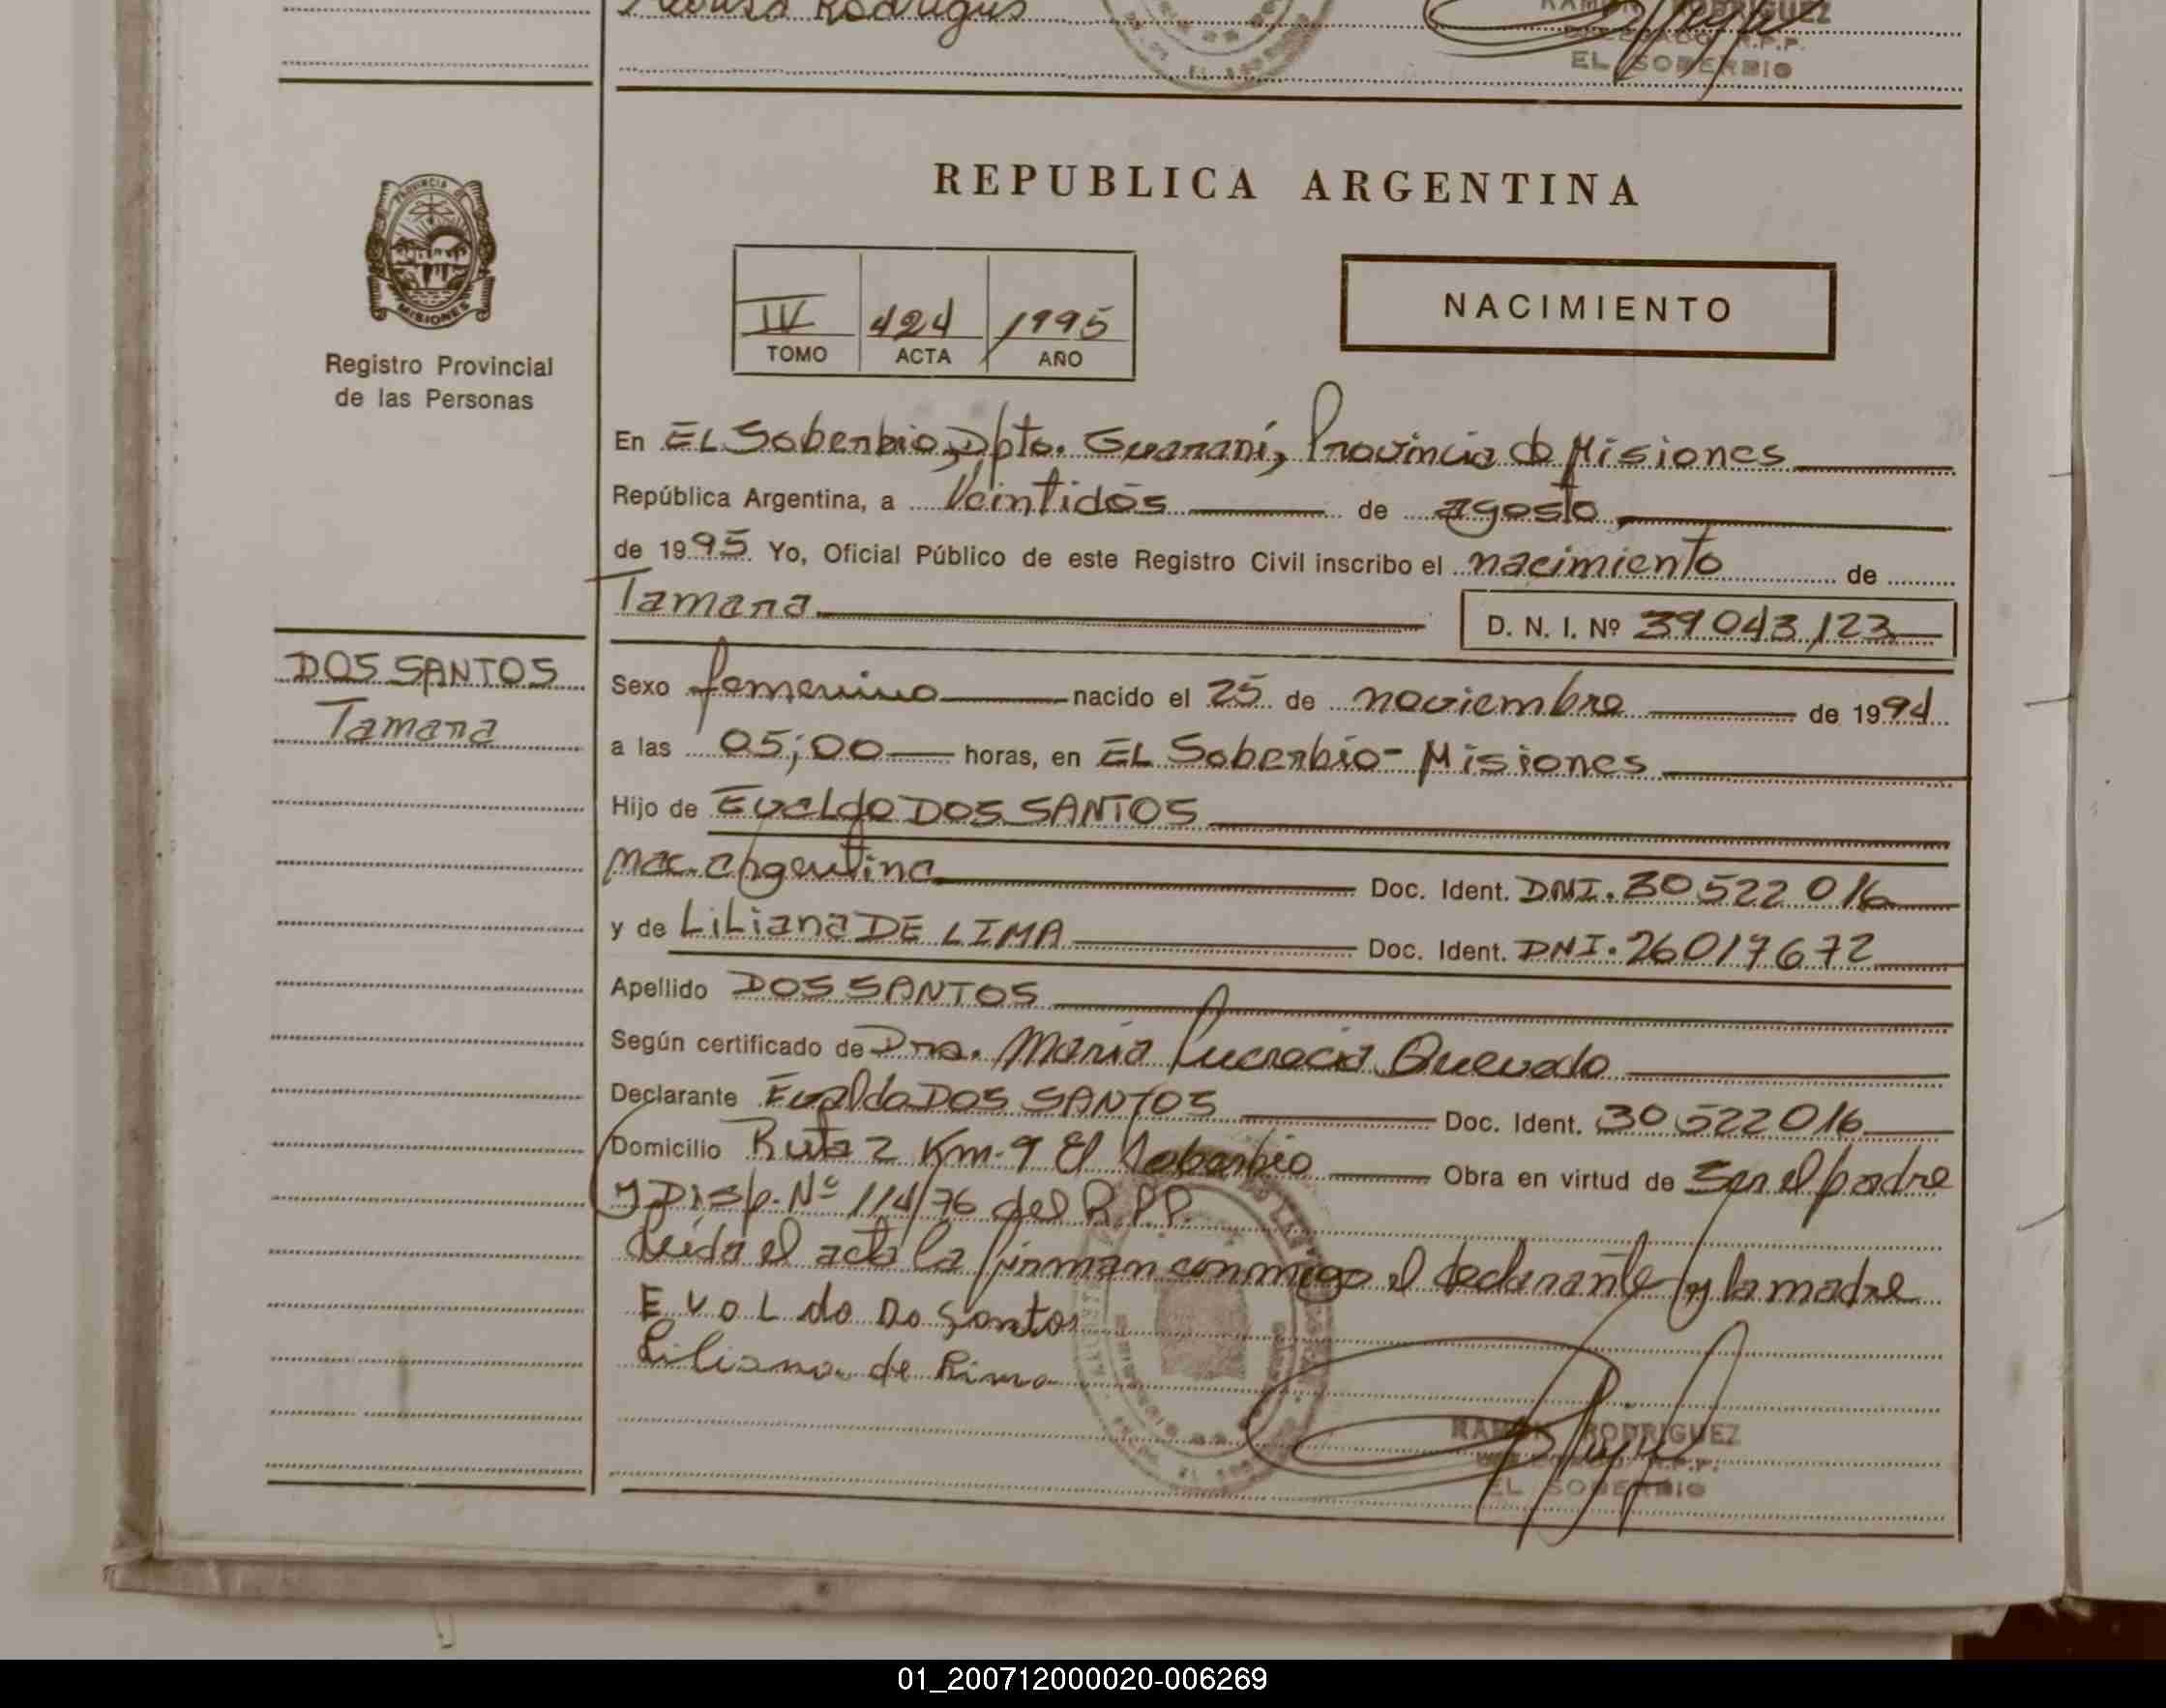 Rodrigues
RAMON RODRIGUEZ
DELEGADO R.P.P.
EL SOBERBIO
PROVINCIA DE
MISIONES
Registro Provincial
de las Personas
REPUBLICA ARGENTINA
IV 424 1995
TOMO ACTA AÑO
NACIMIENTO
En EL Soberbio, Dpto. Guaraní, Provincia de Misiones
República Argentina, a Veintidós de agosto
de 1995 Yo, Oficial Público de este Registro Civil inscribo el nacimiento de
Tamara D. N. I. Nº 39 043,123
DOS SANTOS
Tamara
Sexo femenino nacido el 25 de noviembre de 1994
a las 05;00 horas, en EL Soberbio - Misiones
Hijo de Evaldo DOS SANTOS
nac. argentina Doc. Ident. DNI. 30 522 016
y de Liliana DE LIMA Doc. Ident. DNI. 26017672
Apellido DOS SANTOS
Según certificado de Dra. Maria Lucrecia Quevedo
Declarante Evaldo DOS SANTOS Doc. Ident. 30 522 016
Domicilio Ruta 2 Km-9 El Soberbio Obra en virtud de Ser el padre
y Disp. Nº 114/76 del R.P.P.
Leida el acta la firman conmigo el declarante y la madre
Evoldo Do Santos
Liliana de Lima
RAMON RODRIGUEZ
DELEGADO R.P.P.
EL SOBERBIO
01_200712000020-006269